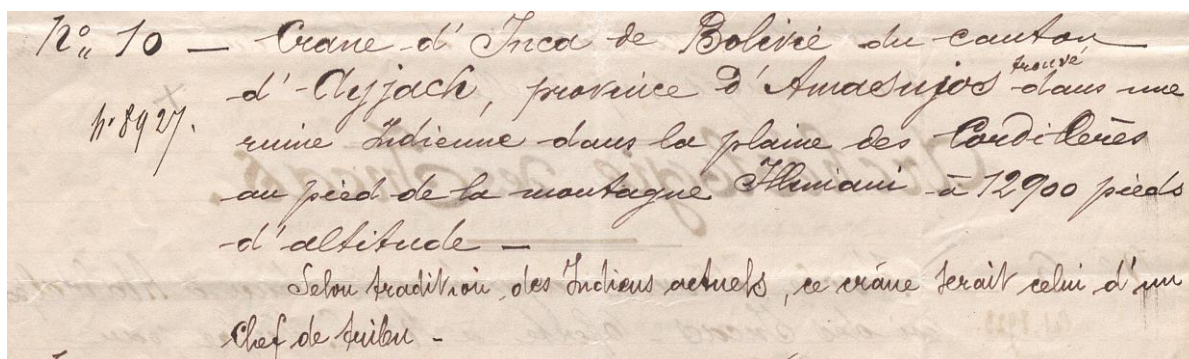 No 10 — Crane d'Inca de Bolivie du canton
d'Ayjach, province d'Amasujos trouvé dans une
nº 8927.
ruine Indienne dans la plaine des Cordillères
au pied de la montagne Illimani à 12900 pieds
d'altitude —
Selon tradition, des Indiens actuels, ce crâne serait celui d'un
Chef de tribu -